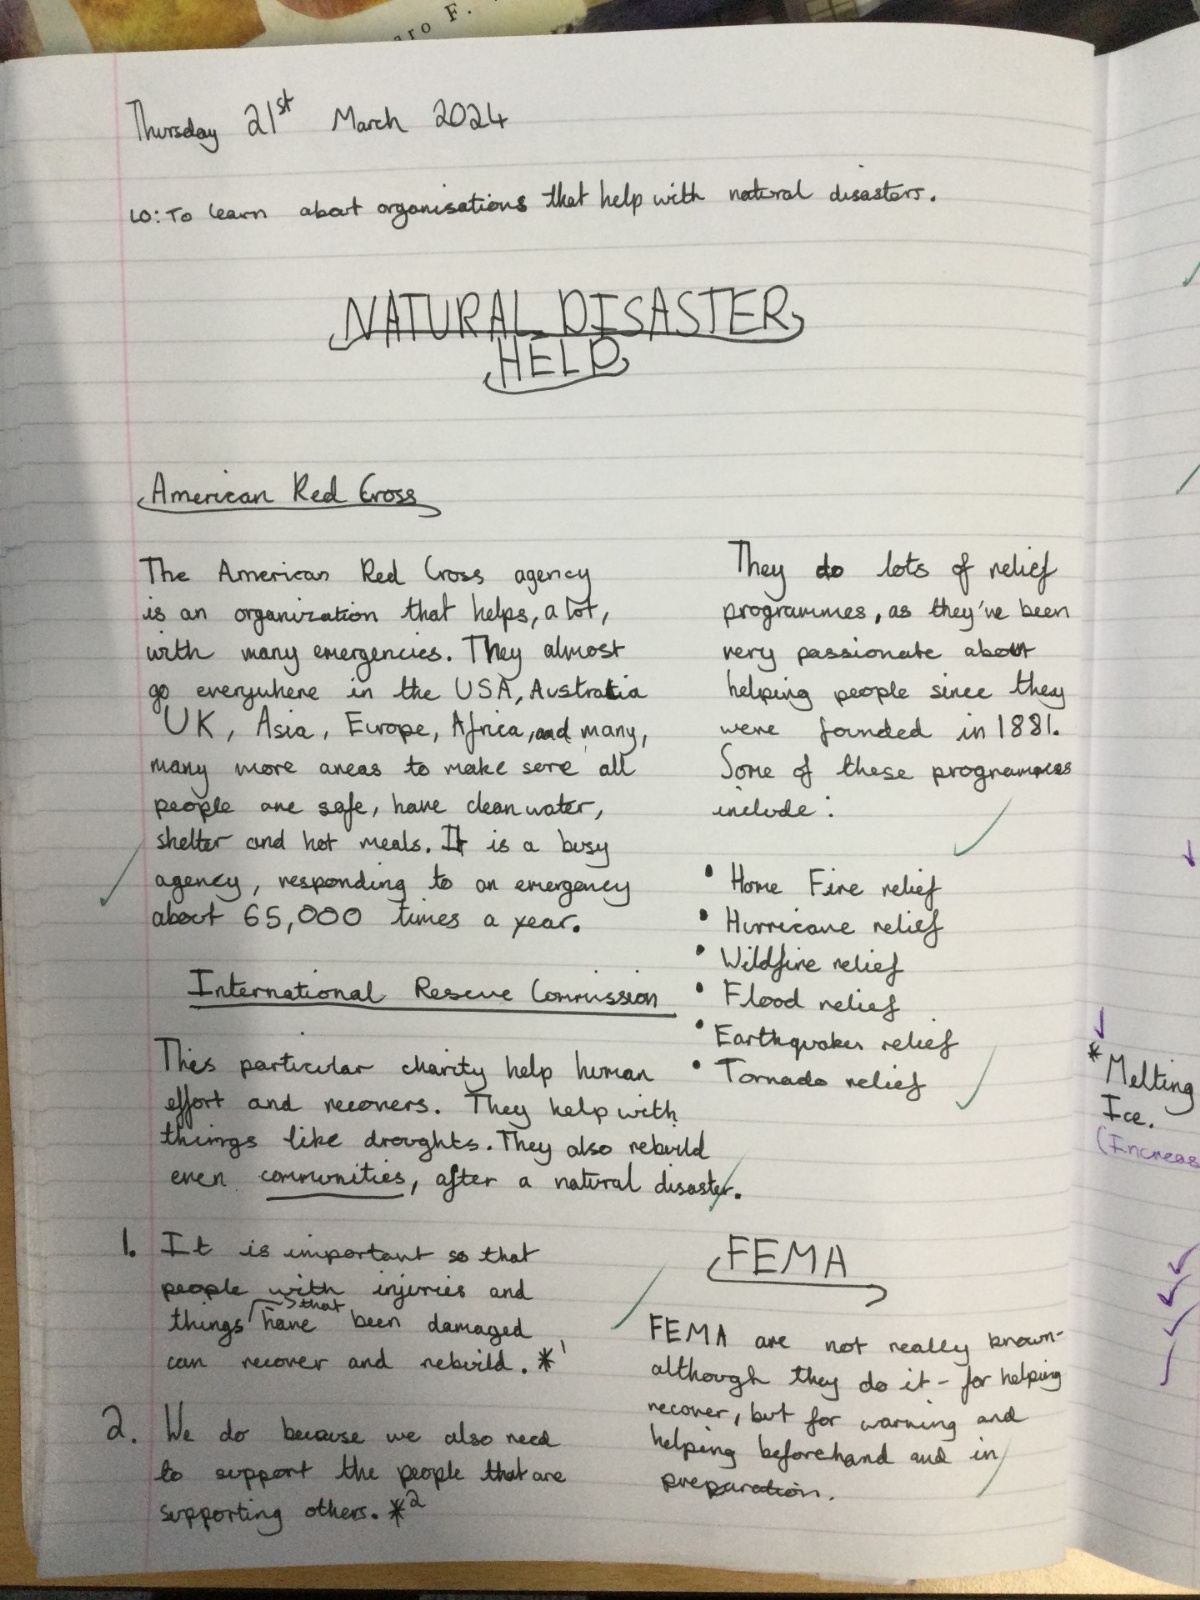 aro F.
Thursday 21st March 2024
LO: To learn about organisations that help with natural disasters.
NATURAL DISASTER
HELP
American Red Cross
The American Red Cross agency
is an organization that helps, a lot,
with many emergencies. They almost
go everywhere in the USA, Australia
UK, Asia, Europe, Africa, and many,
many more areas to make sere all
people are safe, have clean water,
shelter and hot meals. It is a busy
agency, responding to an emergency
about 65,000 times a year.
They do lots of relief
programmes, as they've been
very passionate about
helping people since they
were founded in 1881.
Some of these programmes
include:
• Home Fire relief
• Hurricane relief
• Wildfire relief
• Flood relief
• Earthquakes relief
• Tornado relief
International Rescue Commission
This particular charity help human
effort and recovers. They help with
things like droughts. They also rebuild
even communities, after a natural disaster.
1. It is important so that
people with injuries and
things that have been damaged
can recover and rebuild. *1
2. We do because we also need
to support the people that are
supporting others. *2
FEMA
FEMA are not really known-
although they do it - for helping
recover, but for warning and
helping beforehand and in
preparation.
*Melting
Ice.
(Increas